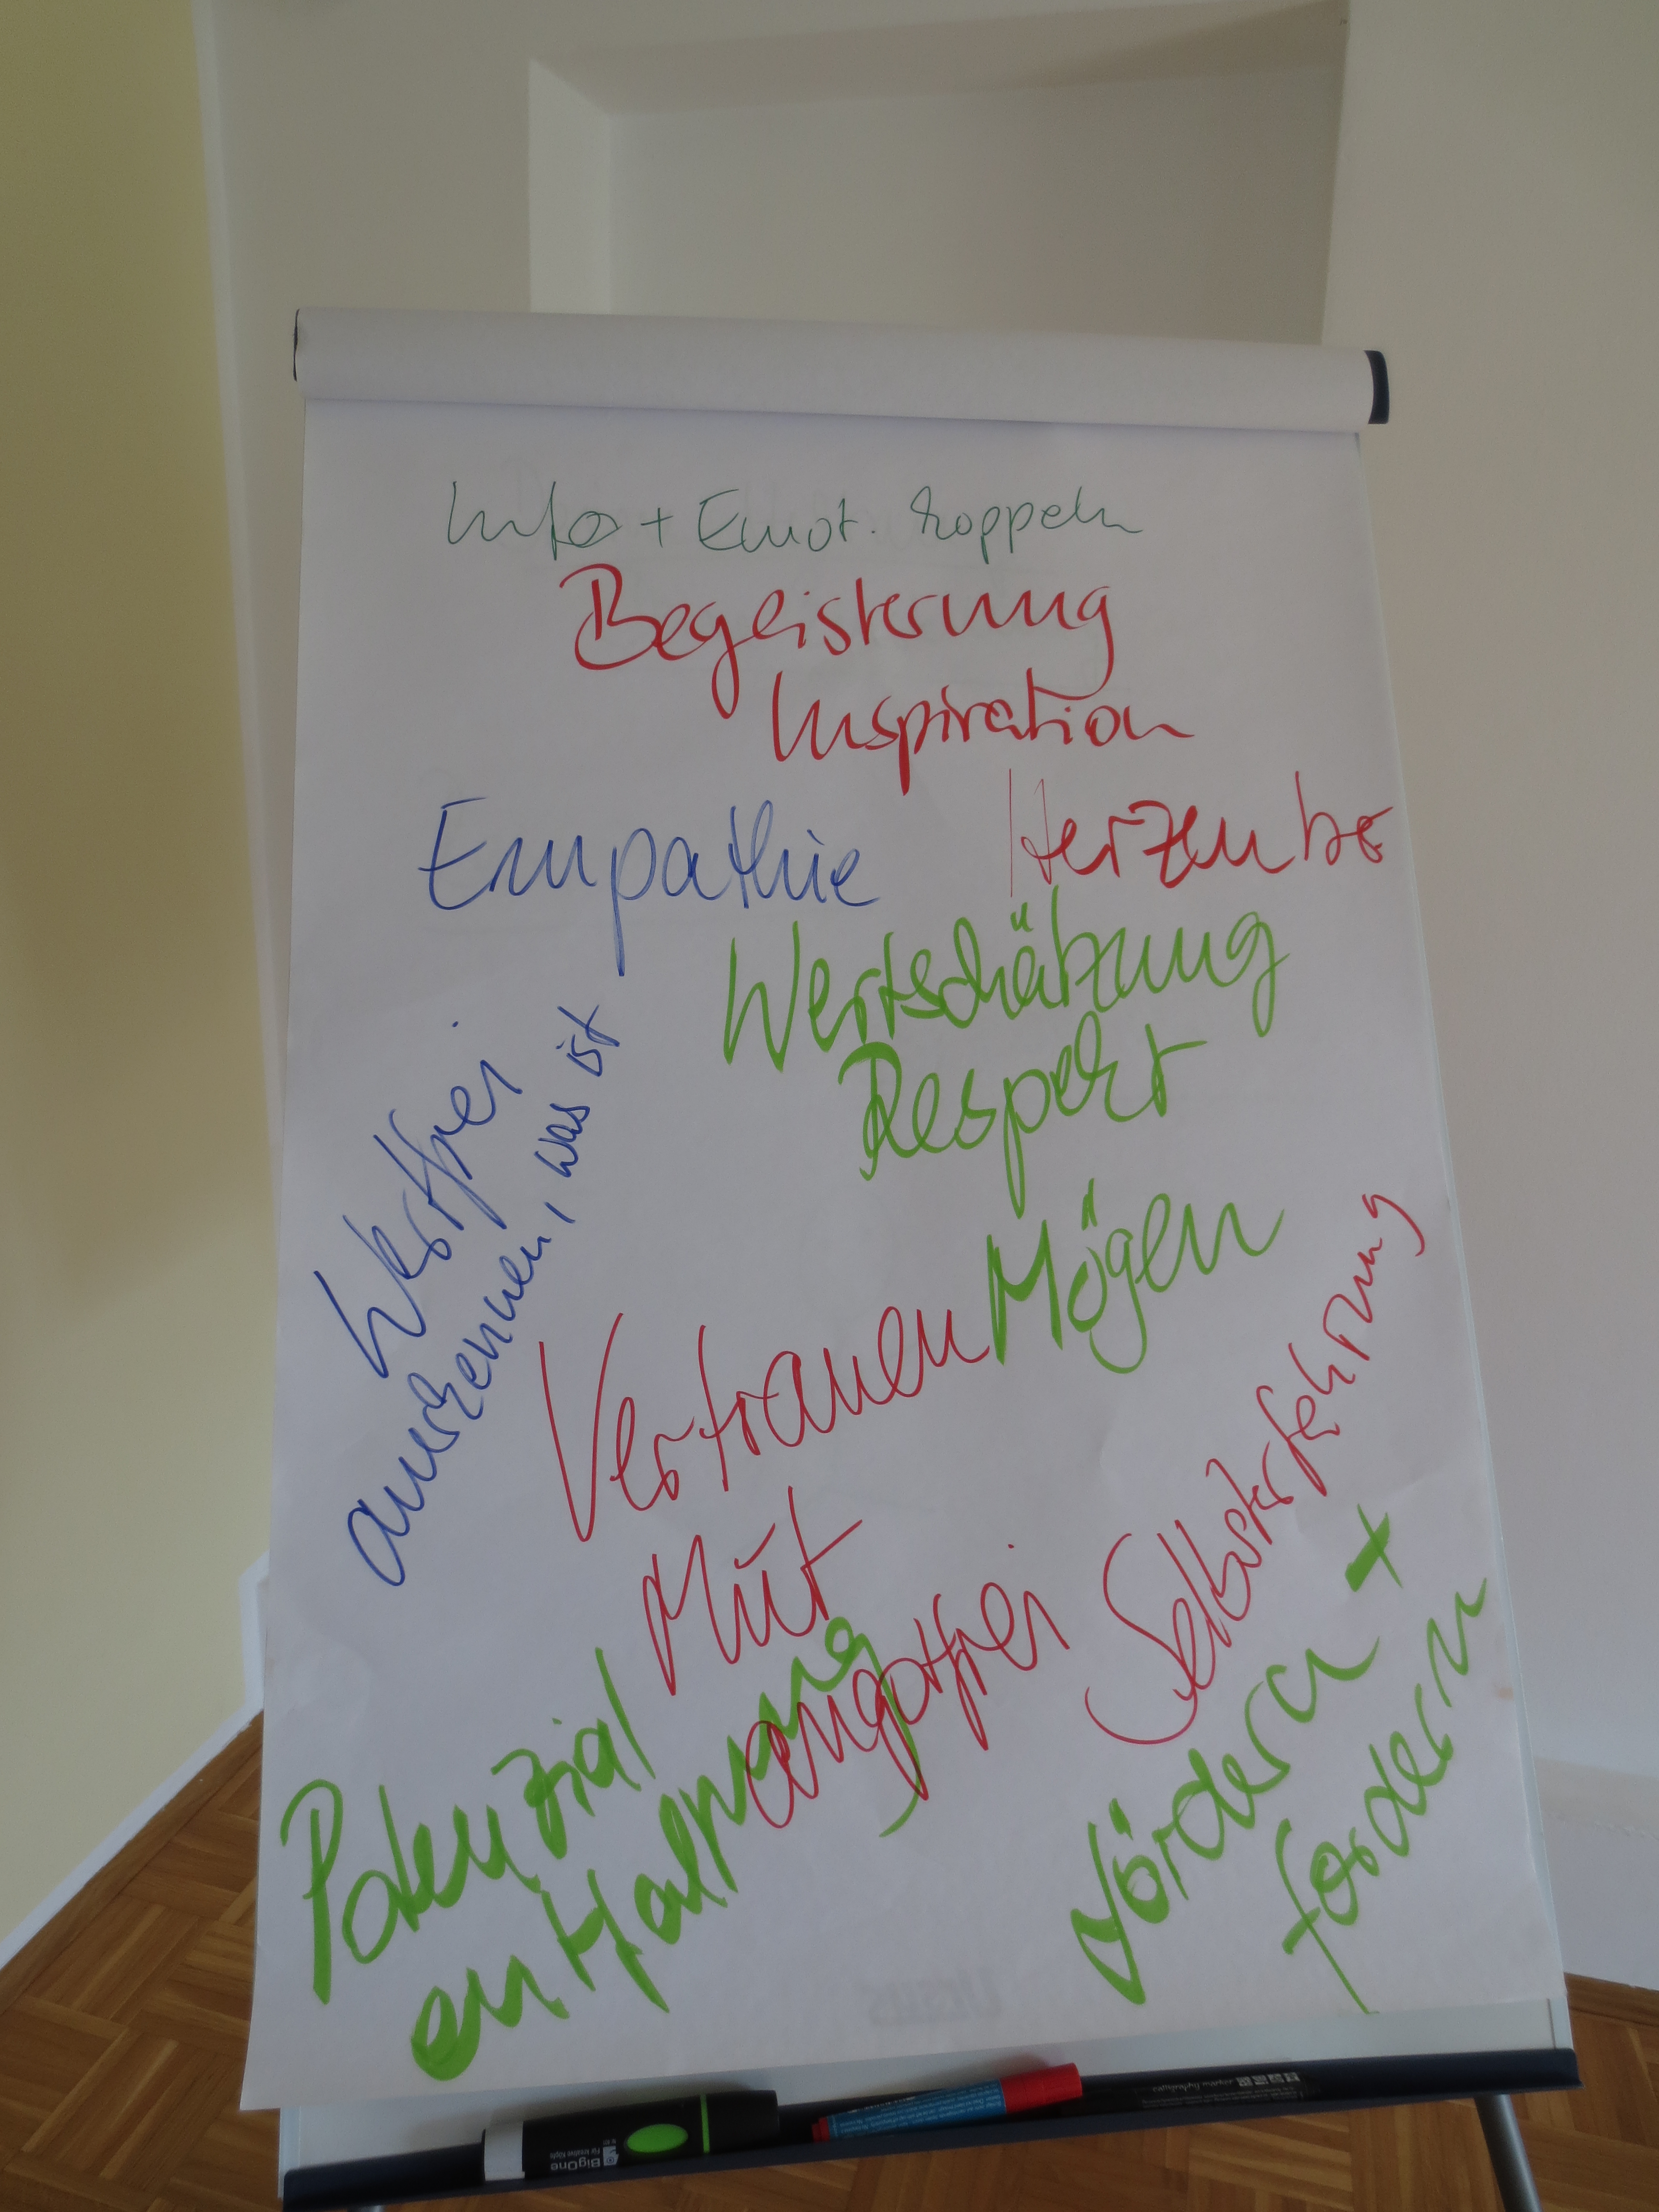 Info + Emot. koppeln
Begeisterung
Inspiration
Empathie
Wertschätzung
Respekt
Wertfrei
anerkennen, was ist
Mögen
Vertrauen
Mut
angstfrei
Selbsterfahrung
Potenzial
entfaltung
fördern +
fordern
BigOne